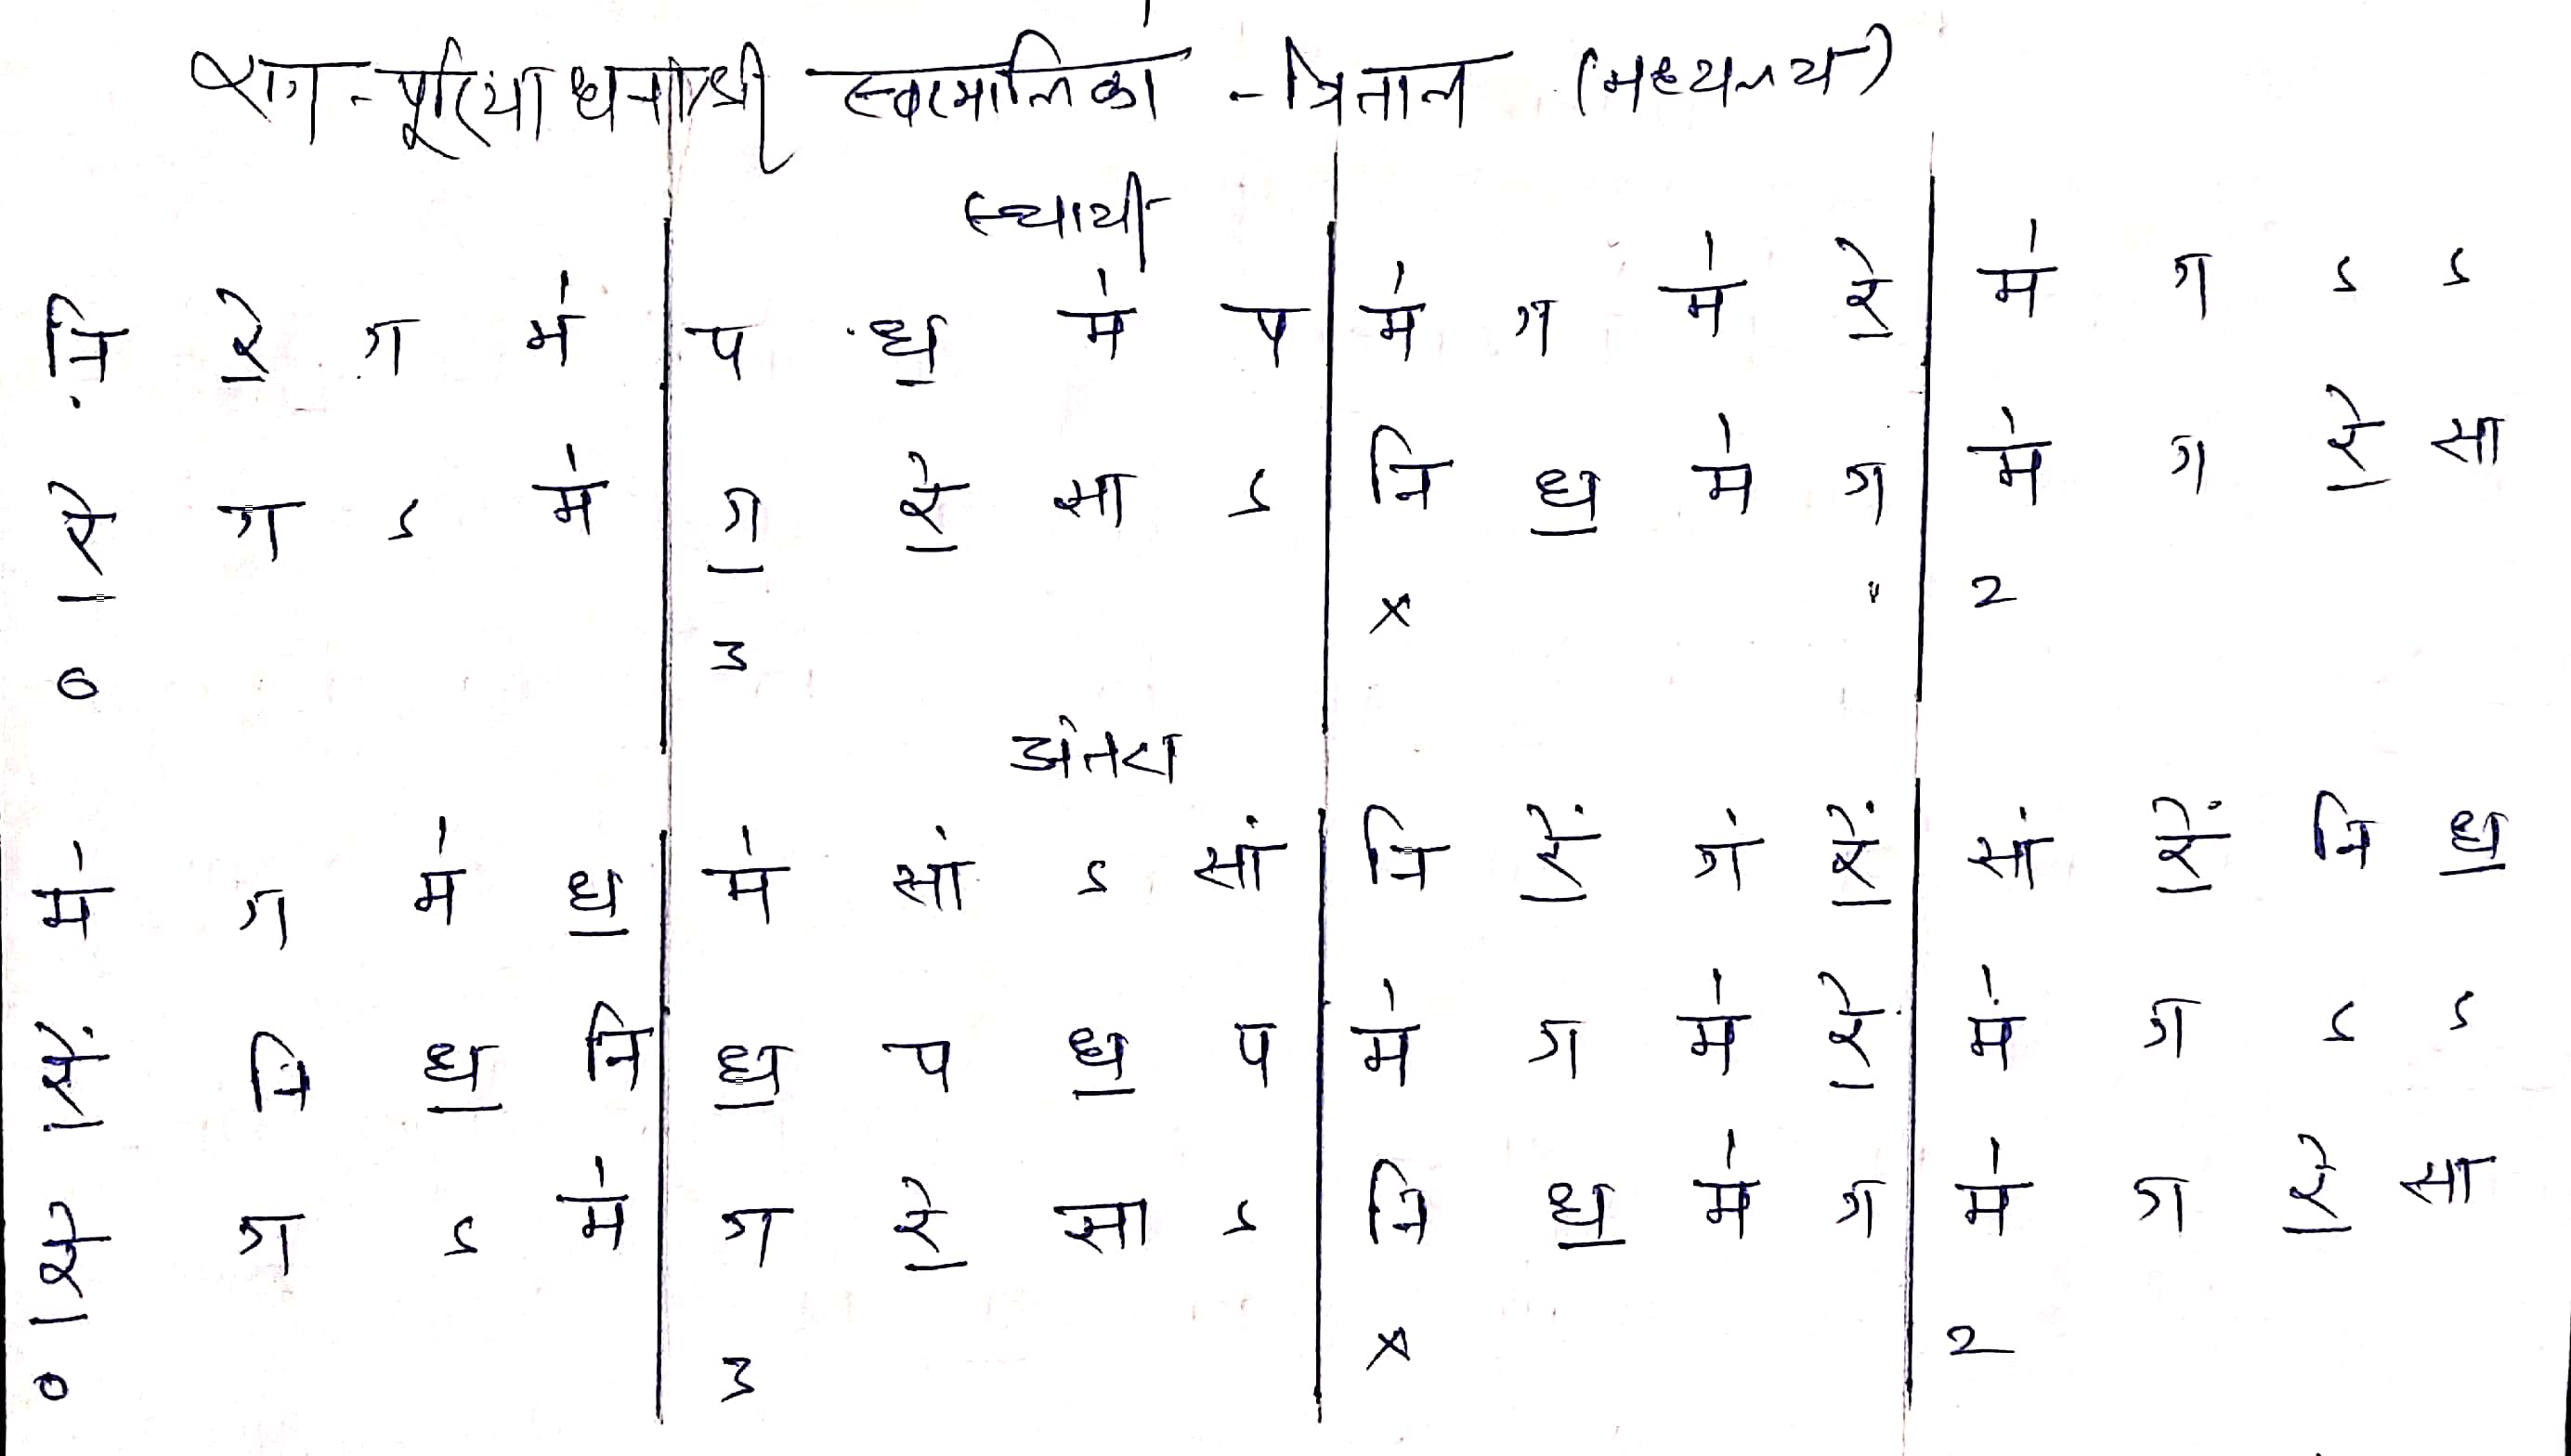 राग - पूरिया धनाश्री स्वरमालिका - त्रिताल (मध्यलय)
स्थायी
नि़ रे॒ ग म॑ | प ध॒ म॑ प | म॑ ग म॑ रे॒ | म॑ ग ऽ ऽ
रे॒ ग ऽ म॑ | ग॒ रे॒ सा ऽ | नि ध॒ म॑ ग | म॑ ग रे॒ सा
0 3 x 2
अंतरा
म॑ ग म॑ ध॒ | म॑ सां ऽ सां | नि रें॒ गं रें॒ | सां रें॒ नि ध॒
रें॒ नि ध॒ नि | ध॒ प ध॒ प | म॑ ग म॑ रे॒ | म॑ ग ऽ ऽ
रे॒ ग ऽ म॑ | ग रे॒ सा ऽ | नि ध॒ म॑ ग | म॑ ग रे॒ सा
0 3 x 2